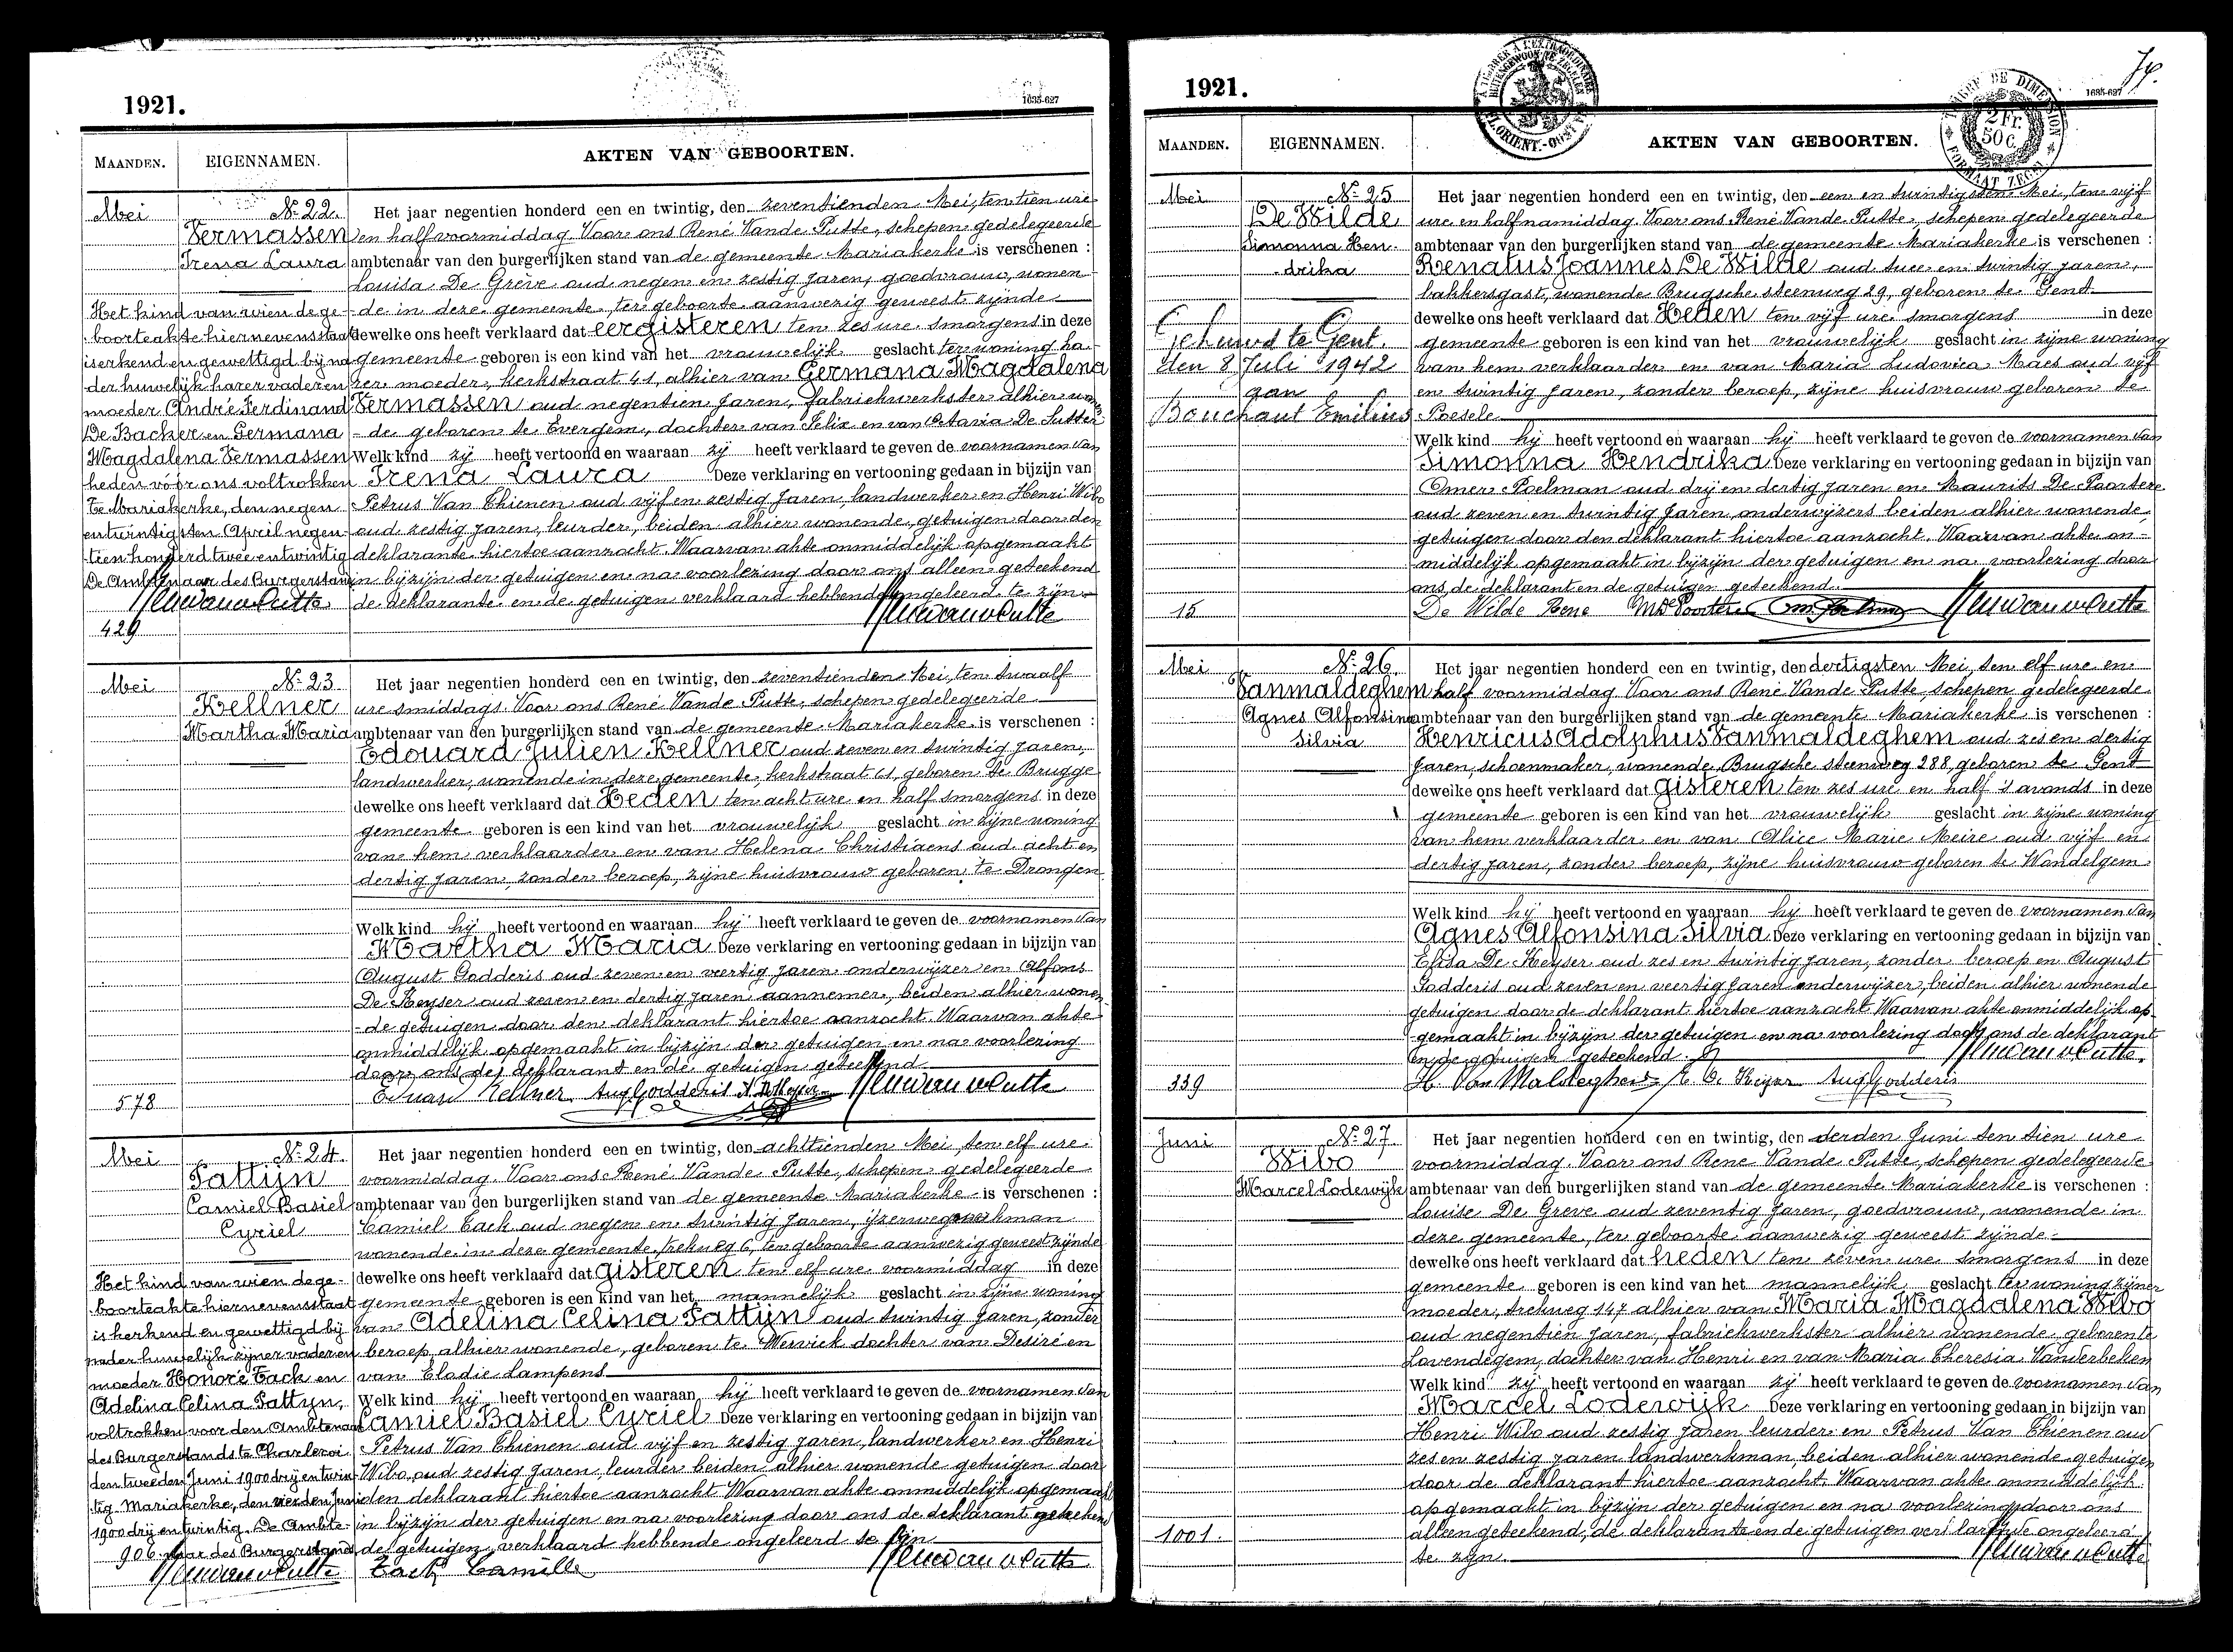 1921.
1635-627
MAANDEN.
EIGENNAMEN.
AKTEN VAN GEBOORTEN.
Mei
No 22.
Vermassen
Irena Laura
Het kind van wien de ge-
boorteakte hiernevens staat
is erkend en gewettigd bij na-
der huwelijk harer vader en
moeder André Ferdinand
De Backer en Germana
Magdalena Vermassen
heden voor ons voltrokken
Te Mariakerke, den negen
en twintigsten April negen-
tien honderd twee en twintig
De Ambtenaar des Burgerstands
429
Het jaar negentien honderd een en twintig, den zeventienden Mei, ten tien ure
en half voormiddag Voor ons René Vande Putte, schepen gedelegeerde
ambtenaar van den burgerlijken stand van de gemeente Mariakerke is verschenen :
Louisa De Grève oud negen en zestig jaren, goedvrouw, wonen-
de in deze gemeente, ter geboorte aanwezig geweest zijnde
dewelke ons heeft verklaard dat eergisteren ten zes ure smorgens in deze
gemeente geboren is een kind van het vrouwelijk geslacht ter woning ha-
rer moeder, kerkstraat 41, alhier van Germana Magdalena
Vermassen oud negentien jaren, fabriekwerkster alhier wonen-
de geboren te Evergem, dochter van Felix en van Octavia De Sutter
Welk kind zij heeft vertoond en waaraan zij heeft verklaard te geven de voornamen van
Irena Laura Deze verklaring en vertooning gedaan in bijzijn van
Petrus Van Thienen oud vijf en zestig jaren, landwerker en Henri Wibo
oud zestig jaren, leurder, beiden alhier wonende, getuigen door den
deklarante hiertoe aanzocht. Waarvan akte onmiddelijk opgemaakt
in bijzijn der getuigen en na voorlezing door ons alleen geteekend
de deklarante en de getuigen verklaard hebbende ongeleerd te zijn
Mei
No 23
Kellner
Martha Maria
578
Het jaar negentien honderd een en twintig, den zeventienden Mei, ten twaalf
ure smiddags. Voor ons René Vande Putte, schepen gedelegeerde
ambtenaar van den burgerlijken stand van de gemeente Mariakerke is verschenen :
Edouard Julien Kellner oud zeven en twintig jaren,
landwerker, wonende in deze gemeente, kerkstraat 61, geboren te Brugge
dewelke ons heeft verklaard dat Heden ten acht ure en half smorgens in deze
gemeente geboren is een kind van het vrouwelijk geslacht in zijne woning
van hem verklaarder en van Helena Christiaens oud acht en
dertig jaren, zonder beroep, zijne huisvrouw geboren te Drongen
Welk kind hij heeft vertoond en waaraan hij heeft verklaard te geven de voornamen van
Martha Maria Deze verklaring en vertooning gedaan in bijzijn van
August Godderis oud zeven en veertig jaren onderwijzer en Alfons
De Keyser oud zeven en dertig jaren aannemer, beiden alhier wonen-
-de getuigen door den deklarant hiertoe aanzocht. Waarvan akte
onmiddelijk opgemaakt in bijzijn der getuigen en na voorlezing
door ons de deklarant en de getuigen geteekend
Eduar Kellner Aug Godderis A. DKeyser
Mei
No 24.
Pattijn
Camiel Basiel
Cyriel
Het kind van wien de ge-
boorteakte hiernevens staat
is herkend en gewettigd bij
nader huwelijk zijner vader en
moeder Honoré Tack en
Adelina Celina Pattyn,
voltrokken voor den Ambtenaar
des Burgerstands te Charleroi
den tweeden Juni 1900 drij en twin-
tig. Mariakerke, den vierden Juni
1900 drij en twintig. De Ambte-
naar des Burgerstands
906
Het jaar negentien honderd een en twintig, den achttienden Mei, ten elf ure
voormiddag. Voor ons René Vande Putte, schepen gedelegeerde
ambtenaar van den burgerlijken stand van de gemeente Mariakerke is verschenen :
Camiel Tack oud negen en twintig jaren, ijzerwegwerkman
wonende in deze gemeente, trekweg 6, ter geboorte aanwezig geweest zijnde
dewelke ons heeft verklaard dat gisteren ten elf ure voormiddag in deze
gemeente geboren is een kind van het mannelijk geslacht in zijne woning
van Adelina Celina Pattijn oud twintig jaren, zonder
beroep, alhier wonende, geboren te Werwick dochter van Desiré en
van Elodie Lampens
Welk kind hij heeft vertoond en waaraan hij heeft verklaard te geven de voornamen van
Camiel Basiel Cyriel Deze verklaring en vertooning gedaan in bijzijn van
Petrus Van Thienen oud vijf en zestig jaren, landwerker en Henri
Wibo, oud zestig jaren, leurder beiden alhier wonende getuigen door
den deklarant hiertoe aanzocht Waarvan akte onmiddelijk opgemaakt
in bijzijn der getuigen en na voorlezing door ons de deklarant geteekend
de getuigen verklaard hebbende ongeleerd te zijn
Tack Camille
1921.
74.
1635-627
TIMBRE DE DIMENSION
2 Fr.
50 C.
FORMAAT ZEGEL
MAANDEN.
EIGENNAMEN.
AKTEN VAN GEBOORTEN.
Mei
No 25
De Wilde
Simonna Hen-
drika
Gehuwd te Gent
den 8 Juli 1942
aan
Bouchaut Emilius
15
Het jaar negentien honderd een en twintig, den een en twintigsten Mei, ten vijf
ure en half namiddag. Voor ons René Vande Putte, schepen gedelegeerde
ambtenaar van den burgerlijken stand van de gemeente Mariakerke is verschenen :
Renatus Joannes De Wilde oud twee en twintig jaren,
bakkersgast, wonende Brugsche steenweg 29, geboren te Gent
dewelke ons heeft verklaard dat Heden ten vijf ure smorgens in deze
gemeente geboren is een kind van het vrouwelijk geslacht in zijne woning
van hem verklaarder en van Maria Ludovica Maes oud vijf
en twintig jaren, zonder beroep, zijne huisvrouw geboren te
Poesele
Welk kind hij heeft vertoond en waaraan hij heeft verklaard te geven de voornamen van
Simonna Hendrika Deze verklaring en vertooning gedaan in bijzijn van
Omer Poelman oud drij en dertig jaren en Maurits De Poortere
oud zeven en twintig jaren, onderwijzers beiden alhier wonende,
getuigen door den deklarant hiertoe aanzocht. Waarvan akte on-
-middelijk opgemaakt in bijzijn der getuigen en na voorlezing door
ons, de deklarant en de getuigen geteekend
De Wilde Rene
Mei
No 26
Vanmaldeghem
Agnes Alfonsina
Silvia
339
Het jaar negentien honderd een en twintig, den dertigsten Mei, ten elf ure en
half voormiddag Voor ons René Vande Putte, schepen gedelegeerde
ambtenaar van den burgerlijken stand van de gemeente Mariakerke is verschenen :
Henricus Adolphus Vanmaldeghem oud zes en dertig
jaren, schoenmaker, wonende, Brugsche steenweg 288, geboren te Gent
dewelke ons heeft verklaard dat gisteren ten zes ure en half 's avonds in deze
gemeente geboren is een kind van het vrouwelijk geslacht in zijne woning
van hem verklaarder en van Alice Marie Meire oud vijf en
dertig jaren, zonder beroep, zijne huisvrouw geboren te Wondelgem
Welk kind hij heeft vertoond en waaraan hij heeft verklaard te geven de voornamen van
Agnes Alfonsina Silvia Deze verklaring en vertooning gedaan in bijzijn van
Elisa De Keyser oud zes en twintig jaren, zonder beroep en August
Godderis oud zeven en veertig jaren onderwijzer, beiden alhier wonende
getuigen door de deklarant hiertoe aanzocht Waarvan akte onmiddelijk op-
gemaakt in bijzijn der getuigen en na voorlezing door ons de deklarant
en de getuigen geteekend.
H. Van Maldeghem E. De Keyser Aug Godderis
Juni
No 27.
Wibo
Marcel Lodewijk
1001.
Het jaar negentien honderd een en twintig, den derden Juni ten tien ure
voormiddag. Voor ons René Vande Putte, schepen gedelegeerde
ambtenaar van den burgerlijken stand van de gemeente Mariakerke is verschenen :
Louise De Greve oud zeventig jaren, goedvrouw, wonende in
deze gemeente, ter geboorte aanwezig geweest zijnde
dewelke ons heeft verklaard dat heden ten zeven ure smorgens in deze
gemeente geboren is een kind van het mannelijk geslacht ter woning zijner
moeder, trekweg 147 alhier van Maria Magdalena Wibo
oud negentien jaren, fabriekwerkster alhier wonende, geboren te
Lovendegem, dochter van Henri en van Maria Theresia Vanderbeken
Welk kind zij heeft vertoond en waaraan zij heeft verklaard te geven de voornamen van
Marcel Lodewijk Deze verklaring en vertooning gedaan in bijzijn van
Henri Wibo oud zestig jaren leurder en Petrus Van Thienen oud
zes en zestig jaren landwerkman, beiden alhier wonende getuigen
door de deklarant hiertoe aanzocht. Waarvan akte onmiddelijk
opgemaakt in bijzijn der getuigen en na voorlezing door ons
alleen geteekend, de deklarante en de getuigen verklarende ongeleerd
te zijn.